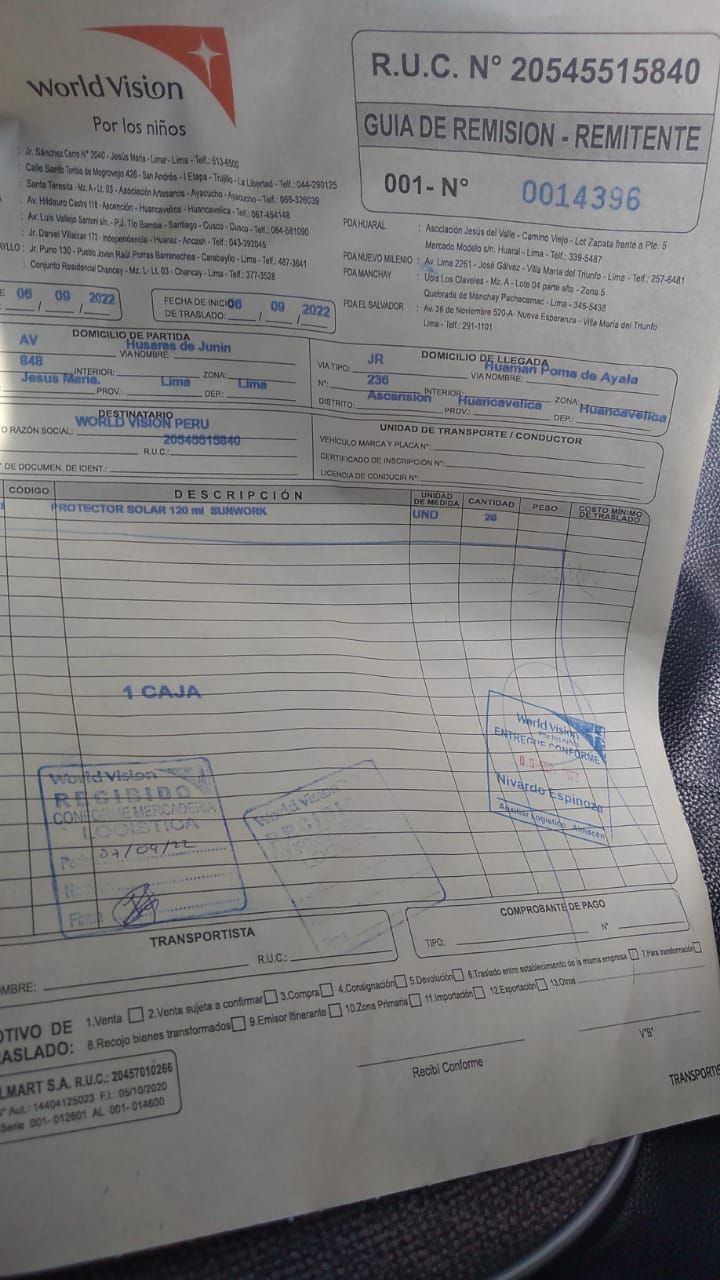 World Vision
Por los niños
R.U.C. N° 20545515840
GUIA DE REMISION - REMITENTE
001- N° 0014396
: Jr. Sánchez Cerro N° 2040 - Jesús María - Lima - Lima - Telf.: 513-6500
: Calle Santo Toribio de Mogrovejo 426 - San Andrés - I Etapa - Trujillo - La Libertad - Telf.: 044-290125
: Santa Teresita - Mz. A - Lt. 03 - Asociación Artesanos - Ayacucho - Ayacucho - Telf.: 066-326039
: Av. Hildauro Castro 118 - Ascención - Huancavelica - Huancavelica - Telf.: 067-454148
: Av. Luis Vallejo Santoni s/n. - P.J. Tío Bamba - Santiago - Cusco - Cusco - Telf.: 084-581090
: Jr. Daniel Villaizan 173 - Independencia - Huaraz - Ancash - Telf.: 043-392645
AYLLO : Jr. Puno 130 - Pueblo Joven Raúl Porras Barrenechea - Carabayllo - Lima - Telf.: 487-3641
: Conjunto Residencial Chancay - Mz. L - Lt. 03 - Chancay - Lima - Telf.: 377-3528
PDA HUARAL : Asociación Jesús del Valle - Camino Viejo - Lot Zapata frente a Pte. 5
Mercado Modelo s/n. Huaral - Lima - Telf.: 339-5487
PDA NUEVO MILENIO : Av. Lima 2261 - José Gálvez - Villa María del Triunfo - Lima - Telf.: 257-6481
PDA MANCHAY : Upis Los Claveles - Mz. A - Lote 04 parte alta - Zona 5
Quebrada de Manchay Pachacamac - Lima - 345-5438
PDA EL SALVADOR : Av. 26 de Noviembre 520-A - Nueva Esperanza - Villa María del Triunfo
Lima - Telf.: 291-1101
E 06 / 09 / 2022
FECHA DE INICIO DE TRASLADO: 06 / 09 / 2022
DOMICILIO DE PARTIDA
AV VIA NOMBRE: Husares de Junin
848 INTERIOR: ZONA:
Jesus Maria. PROV.: Lima DEP.: Lima
DOMICILIO DE LLEGADA
VIA TIPO: JR VIA NOMBRE: Huaman Poma de Ayala
N°: 236 INTERIOR: ZONA:
DISTRITO: Ascension PROV.: Huancavelica DEP.: Huancavelica
DESTINATARIO
O RAZÓN SOCIAL: WORLD VISION PERU
R.U.C.: 20545515840
° DE DOCUMEN. DE IDENT.:
UNIDAD DE TRANSPORTE / CONDUCTOR
VEHÍCULO MARCA Y PLACA N°:
CERTIFICADO DE INSCRIPCIÓN N°:
LICENCIA DE CONDUCIR N°:
CÓDIGO DESCRIPCIÓN UNIDAD DE MEDIDA CANTIDAD PESO COSTO MÍNIMO DE TRASLADO
PROTECTOR SOLAR 120 ml SUNWORK UND 26
1 CAJA
World Vision
Por los niños
ENTREGUE CONFORME
Nivardo Espinoza
Auxiliar Logistico - Almacen
World Vision
RECIBIDO
CONFORME MERCADERIA
LOGISTICA
07/09/22
Firma
World Vision
TRANSPORTISTA
MBRE: R.U.C.:
COMPROBANTE DE PAGO
TIPO: N°
OTIVO DE
RASLADO:
1.Venta 2.Venta sujeta a confirmar 3.Compra 4.Consignación 5.Devolución 6.Traslado entre establecimiento de la misma empresa 7.Para transformación
8.Recojo bienes transformados 9.Emisor Itinerante 10.Zona Primaria 11.Importación 12.Exportación 13.Otros
LMART S.A. R.U.C.: 20457010266
N° Aut.: 14404125023 F.I.: 05/10/2020
Serie 001- 012601 AL 001- 014600
Recibí Conforme
V°B°
TRANSPORTIS